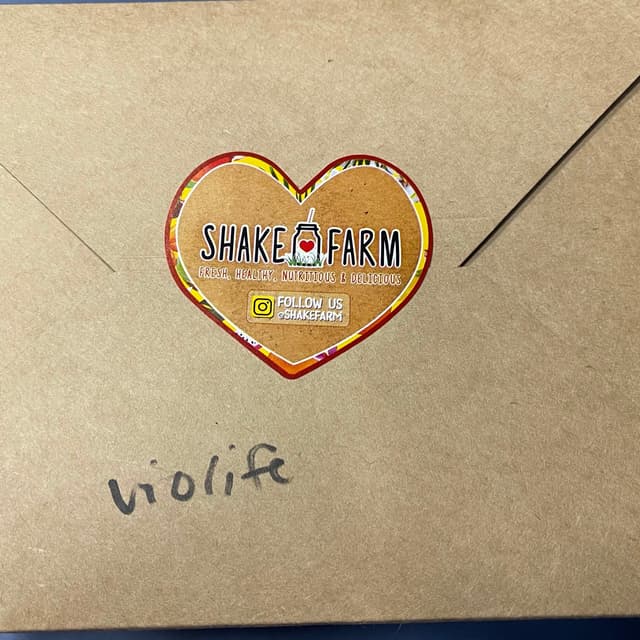 SHAKE FARM
FRESH, HEALTHY, NUTRITIOUS & DELICIOUS
FOLLOW US
@SHAKEFARM
violife